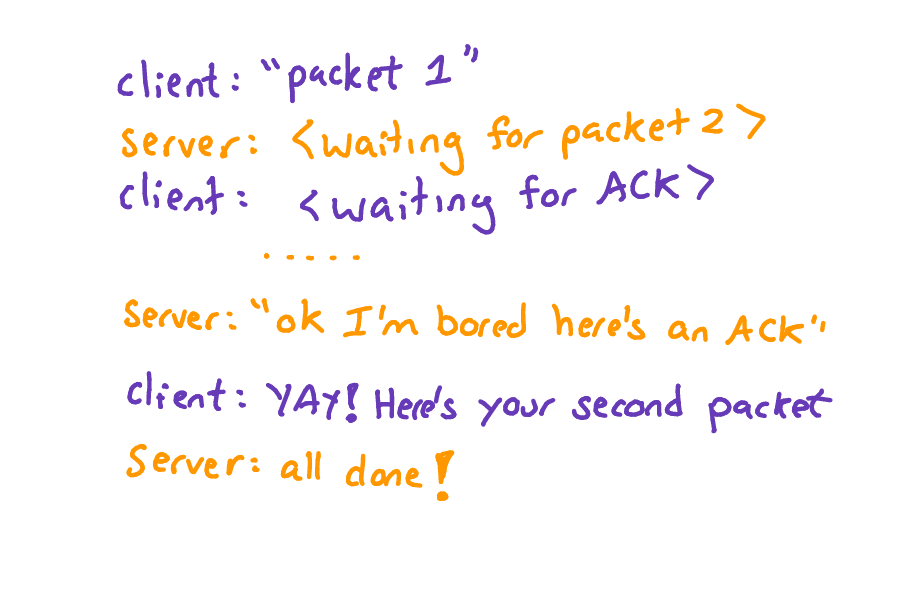 client: "packet 1"
server: <waiting for packet 2>
client: <waiting for ACK>
.....
server: "ok I'm bored here's an ACK"
client: YAY! Here's your second packet
server: all done!